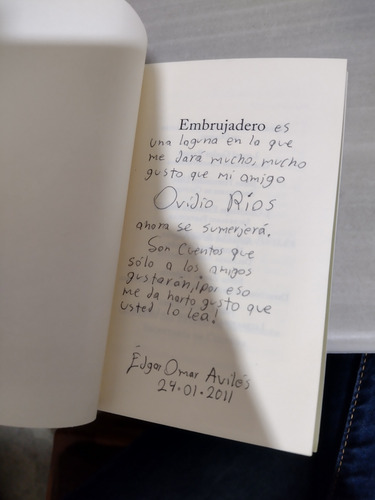 Embrujadero es
una laguna en la que
me dará mucho, mucho
gusto que mi amigo
Ovidio Ríos
ahora se sumerjerá.
Son cuentos que
sólo a los amigos
gustarán, ¡por eso
me da harto gusto que
usted lo lea!
Édgar Omar Avilés
24·01·2011